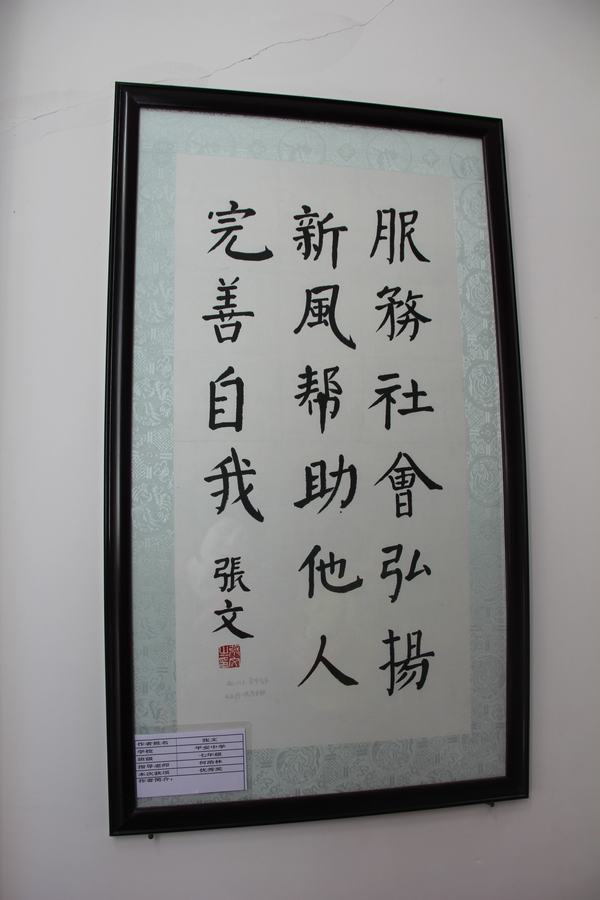 服務社會弘揚
新風帮助他人
完善自我
張文
作者姓名 张文
学校 平安中学
班级 七年级
指导老师 何浩林
本次获奖 优秀奖
作者简介：